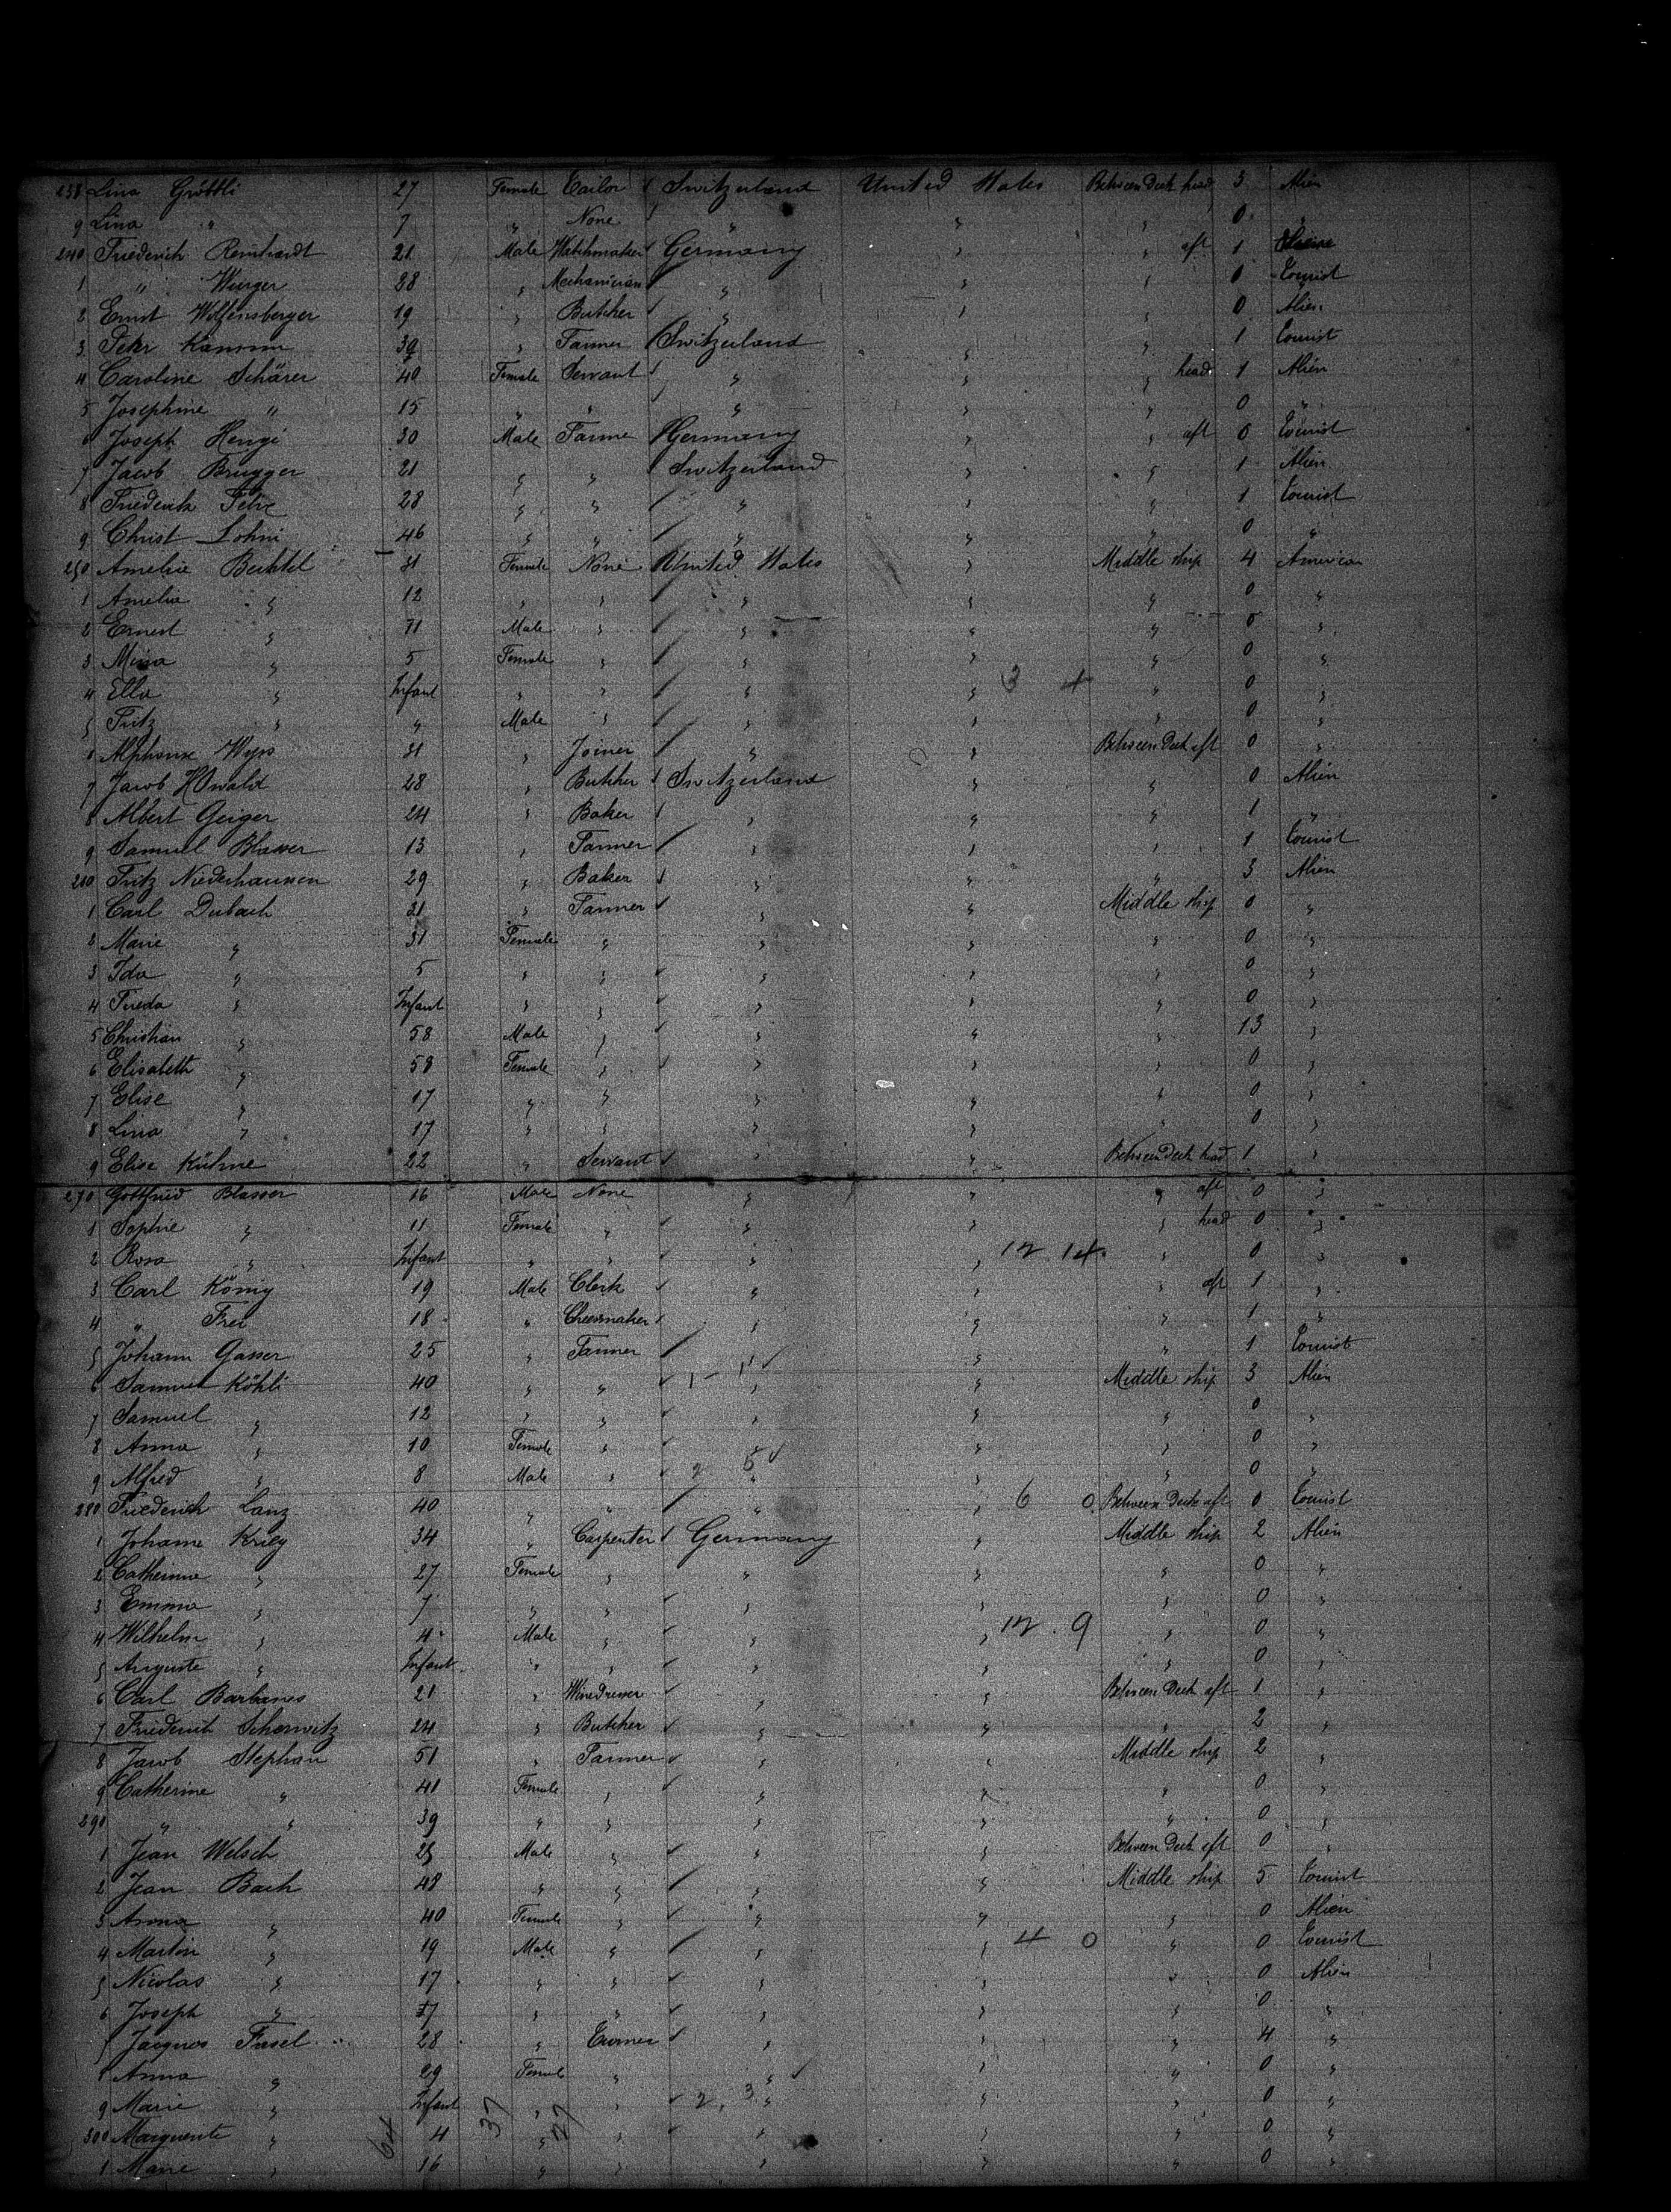 238 Lina Gröttli 27 Female Tailor Switzerland United States Between Deck head 3 Alien
9 Lina " 7 " None " " " 0 "
240 Friederich Reinhardt 21 Male Watchmaker Germany " " aft 1
1 " Wurger 28 " Mechanician " " " 0 Tourist
2 Ernst Wolfensberger 19 " Butcher " " " 0 Alien
3 Peter 39 " Farmer Switzerland " " 1 Tourist
4 Caroline Schärer 40 Female Servant " " " head 1 Alien
5 Josephine " 15 " " " " " 0 "
6 Joseph Hengi 30 Male Farme Germany " " aft 0 Tourist
7 Jacob Brugger 21 " " Switzerland " " 1 Alien
8 Friederich 28 " " " " " 1 Tourist
9 Christ Lohni 46 " " " " " 0 "
250 Amelie Bechtel 31 Female None United States " Middle ship 4 American
1 Amelie " 12 " " " " " 0 "
2 Ernest " 71 Male " " " " 0 "
3 Mina " 5 Female " " " " 0 "
4 Ella " Infant " " " " 3 4 " 0 "
5 Fritz " " Male " " " " 0 "
6 Alphonse Wyss 31 " Joiner " " Between Deck aft 0 "
7 Jacob HOwald 28 " Butcher Switzerland " " 0 Alien
8 Albert Geiger 24 " Baker " " " 1 "
9 Samuel Blasser 13 " Farmer " " " 1 Tourist
260 Fritz Niederhausen 29 " Baker " " " 3 Alien
1 Carl Dubach 31 " Farmer " " Middle ship 0 "
2 Marie " 31 Female " " " " 0 "
3 Ida " 5 " " " " " 0 "
4 Frieda " Infant " " " " " 0 "
5 Christian " 58 Male " " " " 13 "
6 Elisabeth " 58 Female " " " " 0 "
7 Elise " 17 " " " " " 0 "
8 Lina " 17 " " " " " 0 "
9 Elise Kühne 22 " Servant " " Between Deck head 1 "
270 Gottfried Blasser 16 Male None " " " aft 0 "
1 Sophie " 11 Female " " " " head 0 "
2 Rosa " Infant " " " " 12 14 " 0 "
3 Carl König 19 Male Clerk " " " aft 1 "
4 " Frei 18 " Cheesmaker " " " 1 "
5 Johann Gasser 25 " Farmer " " " 1 Tourist
6 Samuel Köhli 40 " " 1 - 1 " " Middle ship 3 Alien
7 Samuel " 12 " " " " " 0 "
8 Anna " 10 Female " " " " 0 "
9 Alfred " 8 Male " 2 5 " " " 0 "
280 Friederich Lanz 40 " " " " 6 0 Between Deck aft 0 Tourist
1 Johann Krieg 34 " Carpenter Germany " Middle ship 2 Alien
2 Catherine " 27 Female " " " " 0 "
3 Emma " 7 " " " " " 0 "
4 Wilhelm " 4 Male " " " 12 9 " 0 "
5 Auguste " Infant " " " " " 0 "
6 Carl Barbanes 21 " Winedresser " " Between Deck aft 1 "
7 Friederich Scherwitz 24 " Butcher " " " 2 "
8 Jacob Stephan 51 " Farmer " " Middle ship 2 "
9 Catherine " 41 Female " " " " 0 "
290 " " 39 " " " " " 0 "
1 Jean Welsch 25 Male " " " Between Deck aft 0 "
2 Jean Bach 48 " " " " Middle ship 5 Tourist
3 Anna " 40 Female " " " " 0 Alien
4 Martin " 19 Male " " " 4 0 " 0 Tourist
5 Nicolas " 17 " " " " " 0 Alien
6 Joseph " 7 " " " " " 0 "
7 Jacques Fusel 28 " " " " 4 "
8 Anna " 29 Female " " " " 0 "
9 Marie " Infant " " 2 3 " " " 0 "
300 Marguerite " 4 " " " " " 0 "
1 Marie " 16 " " " " " 0 "
64 37 27